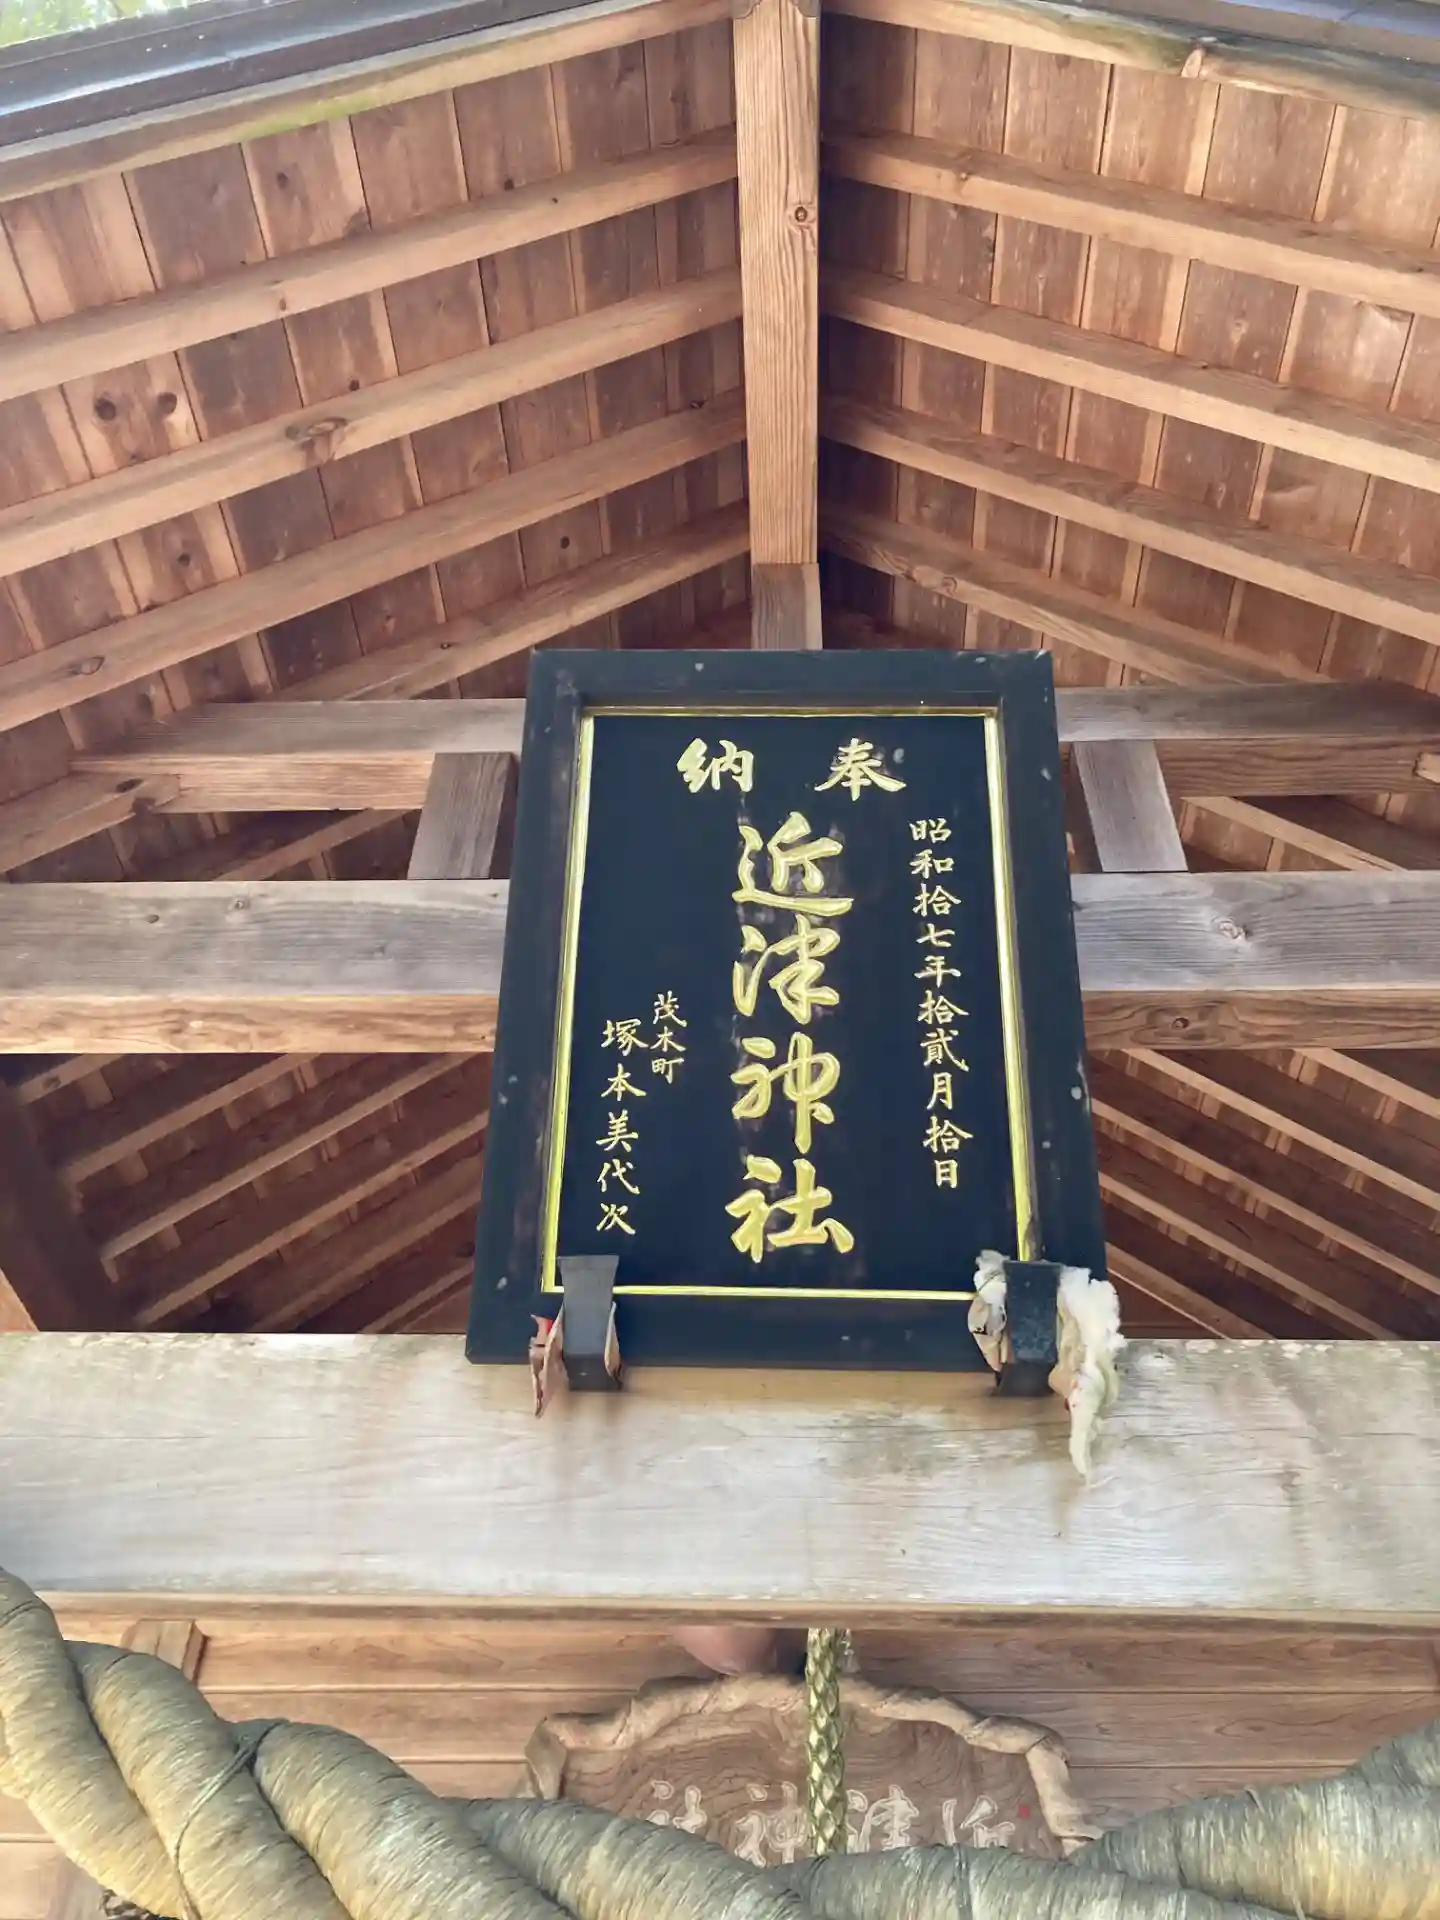 奉納
昭和拾七年拾貮月拾日
近津神社
茂木町
塚本美代次
近津神社